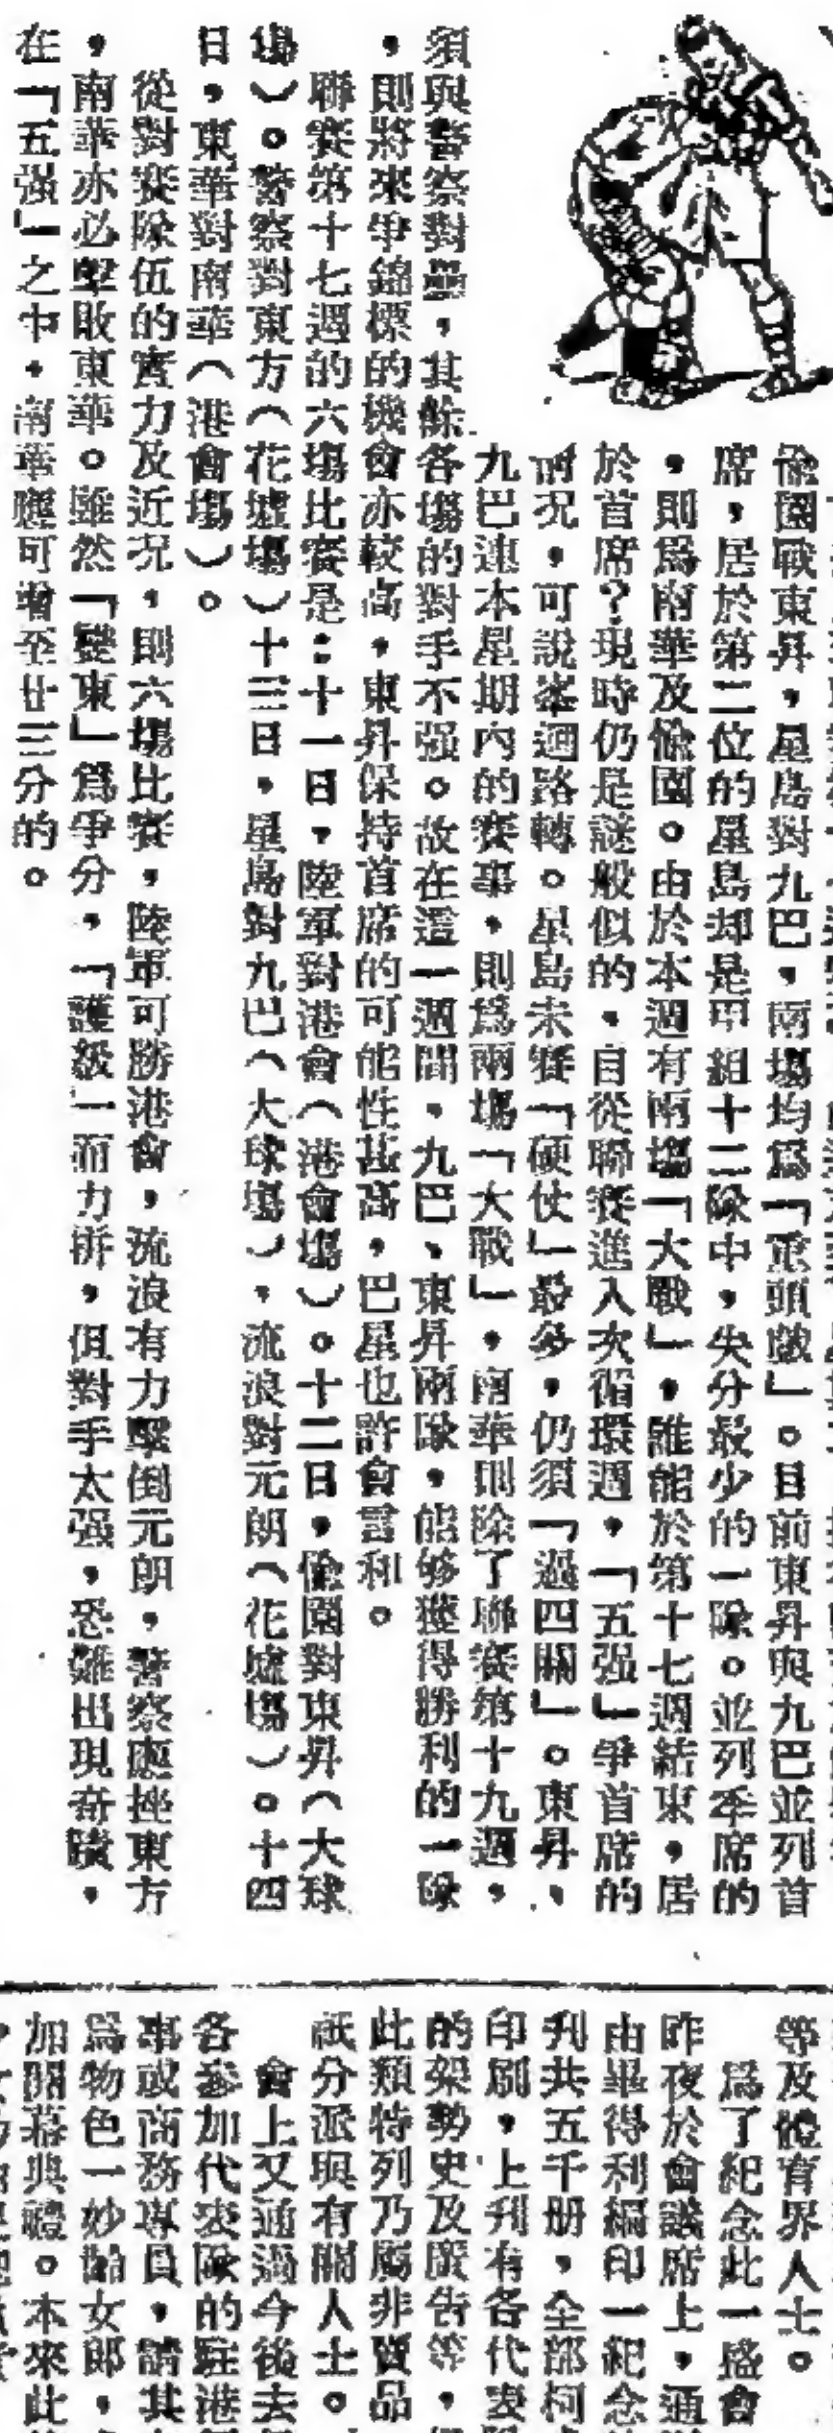 愉園戰東昇，星島對九巴，兩場均爲「重頭戲」。目前東昇與九巴並列首
席，居於第二位的星島却是甲組十二隊中，失分最少的一隊。並列季席的
，則爲南華及愉園。由於本週有兩場「大戰」，誰能於第十七週結束，居
於首席？現時仍是謎般似的，自從聯賽進入次循環週，「五强」爭首席的
前况，可說峯迴路轉。星島未賽「硬仗」最多，仍須「過四關」。東昇、
九巴連本星期內的賽事，則爲兩場「大戰」，南華則除了聯賽第十九週，
須與警察對壘，其餘各場的對手不强。故在這一週間，九巴、東昇兩隊，能够獲得勝利的一隊
，則將來爭錦標的機會亦較高，東昇保持首席的可能性甚高，巴星也許會言和。
聯賽第十七週的六場比賽是：十一日，陸軍對港會（港會場）。十二日，愉園對東昇（大球
場）。警察對東方（花墟場）十三日，星島對九巴（大球場），流浪對元朗（花墟場）。十四
日，東華對南華（港會場）。
從對賽隊伍的實力及近况，則六場比賽，陸軍可勝港會，流浪有力擊倒元朗，警察應挫東方
，南華亦必擊敗東華。雖然「雙東」爲爭分，「護級」而力拼，但對手太强，恐難出現奇蹟，
在「五强」之中，南華應可增至廿三分的。
等及體育界人士。
爲了紀念此一盛會
昨夜於會議席上，通
由畢得利編印一紀念
刋共五千册，全部柯
印刷，上刋有各代表
的架勢史及廣告等，
此類特列乃屬非賣品
祇分派與有關人士。
會上又通過今後去
各參加代表隊的駐港
事或商務專員，請其
爲物色一妙齡女郎，
加開幕典禮。本來此